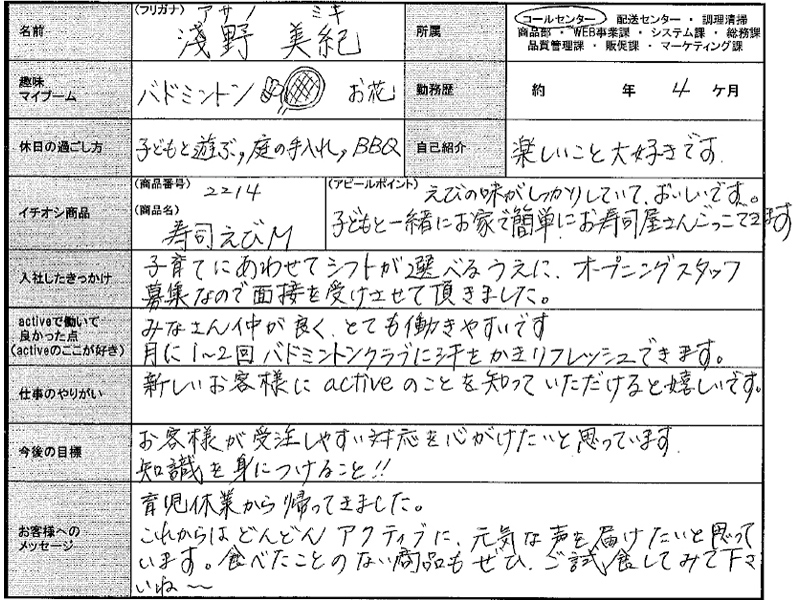 名前
(フリガナ) アサノ ミキ
淺野 美紀
所属
コールセンター ・ 配送センター ・ 調理清掃
商品部 ・ WEB事業課 ・ システム課 ・ 総務課
品質管理課 ・ 販促課 ・ マーケティング課
趣味
マイブーム
バドミントン お花
勤務歴
約 年 4 ヶ月
休日の過ごし方
子どもと遊ぶ, 庭の手入れ, BBQ
自己紹介
楽しいこと大好きです.
イチオシ商品
(商品番号) 2214
(商品名)
寿司えびM
(アピールポイント) えびの味がしっかりしていて、おいしいです。
子どもと一緒にお家で簡単にお寿司屋さんごっこできます
入社したきっかけ
子育てにあわせてシフトが選べるうえに、オープニングスタッフ
募集なので面接を受けさせて頂きました。
activeで働いて
良かった点
(activeのここが好き)
みなさん仲が良く、とても働きやすいです
月に1〜2回バドミントンクラブに汗をかきリフレッシュできます。
仕事のやりがい
新しいお客様にactiveのことを知っていただけると嬉しいです。
今後の目標
お客様が受注しやすい対応を心がけたいと思っています.
知識を身につけること!!
お客様への
メッセージ
育児休業から帰ってきました。
これからはどんどんアクティブに、元気な声を届けたいと思って
います。食べたことのない商品もぜひ、ご試食してみて下さ
いね〜